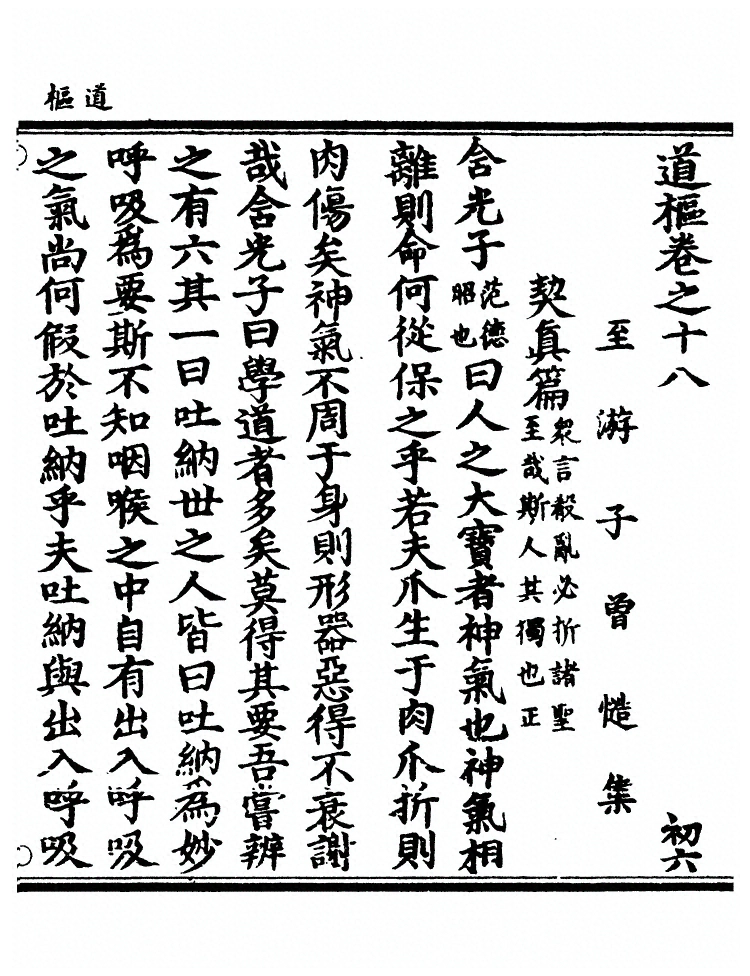 道樞
道樞卷之十八 初六
至游子曾慥集
契眞篇 衆言殽亂必折諸聖至哉斯人其獨也正
含光子 范德昭也 曰人之大寶者神氣也神氣相
離則命何從保之乎若夫爪生于肉爪折則
肉傷矣神氣不周于身則形器惡得不衰謝
哉含光子曰學道者多矣莫得其要吾嘗辨
之有六其一曰吐納丗之人皆曰吐納爲妙
呼吸爲要斯不知咽喉之中自有出入呼吸
之氣尚何假於吐納乎夫吐納與出入呼吸